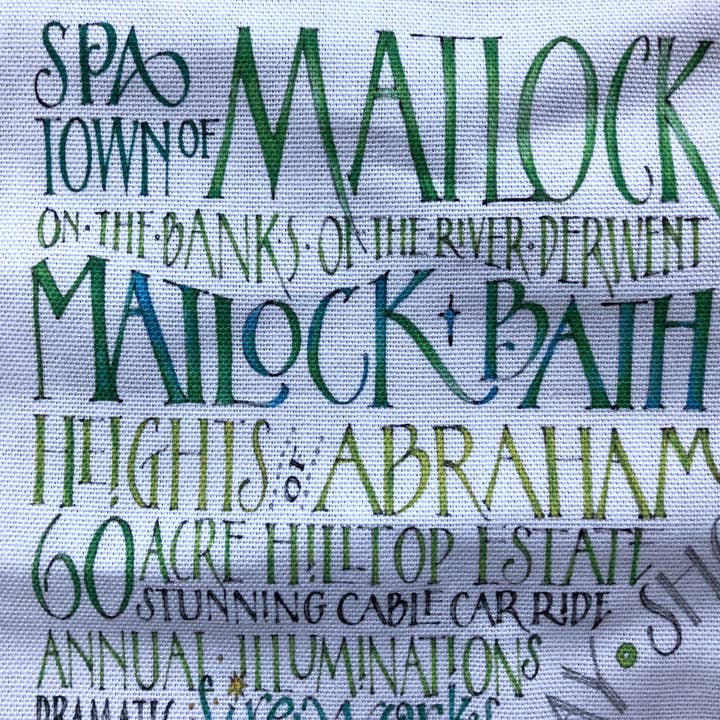 SPA
TOWN OF MATLOCK
ON·THE·BANKS·OF·THE·RIVER·DERWENT
MATLOCK + BATH
HEIGHTS OF ABRAHAM
60 ACRE HILLTOP ESTATE
STUNNING CABLE CAR RIDE
ANNUAL ILLUMINATIONS
DRAMATIC fireworks